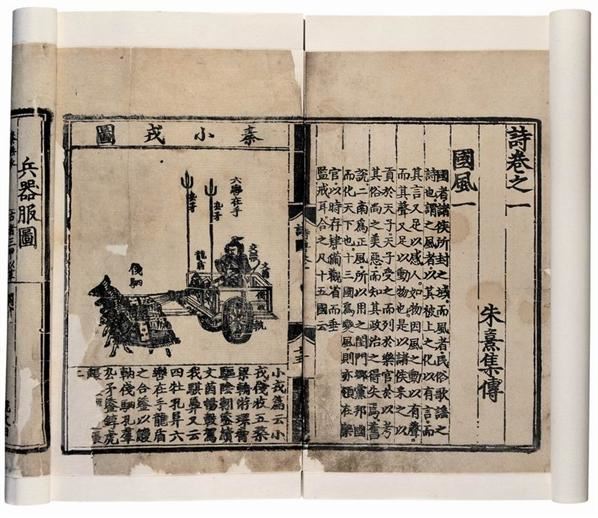 詩卷之一
國風一
朱熹集傳
國者諸侯所封之域而風者民俗歌謠之
詩也謂之風者以其被上之化以有言而
其言又足以感人如物因風之動以有聲
而其聲又足以動物也是以諸侯采之以
貢於天子天子受之而列於樂官於以考
其俗尚之美惡而知其政治之得失焉舊
說二南爲正風所以用之閨門鄉黨邦國
而化天下也十三國爲變風則亦領在樂
官以時存肄備觀省而垂
監戒耳合之凡十五國云
秦小戎圖
六轡在手
厹矛
龍盾
文茵
俴駟
小戎篇云小
戎俴收五楘
梁輈游環脅
驅陰靷鋈續
文茵暢轂駕
我騏馵又云
四牡孔阜六
轡在手龍盾
之合鋈以觼
軜俴駟孔羣
厹矛鋈錞虎
兵器服圖